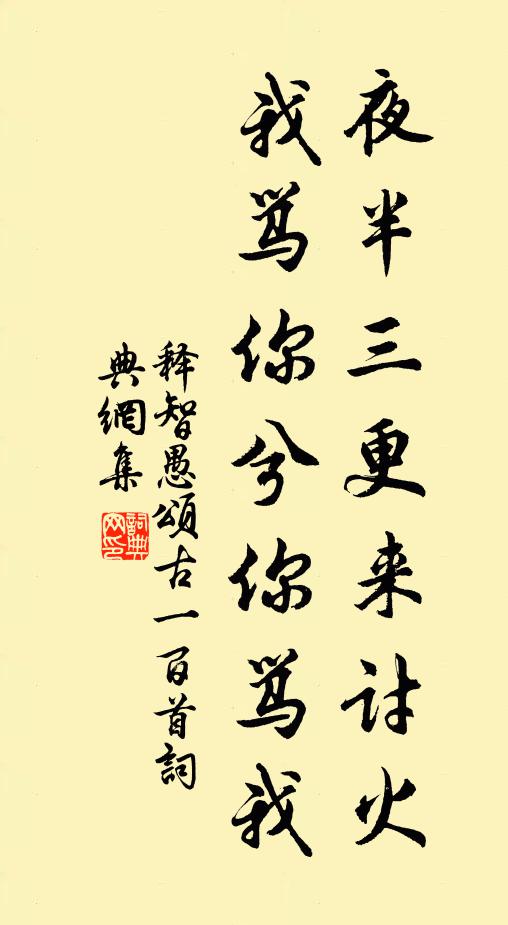 夜半三更来討火
我骂你兮你骂我
释智愚頌古一百首詞
典網集
詞典
网印